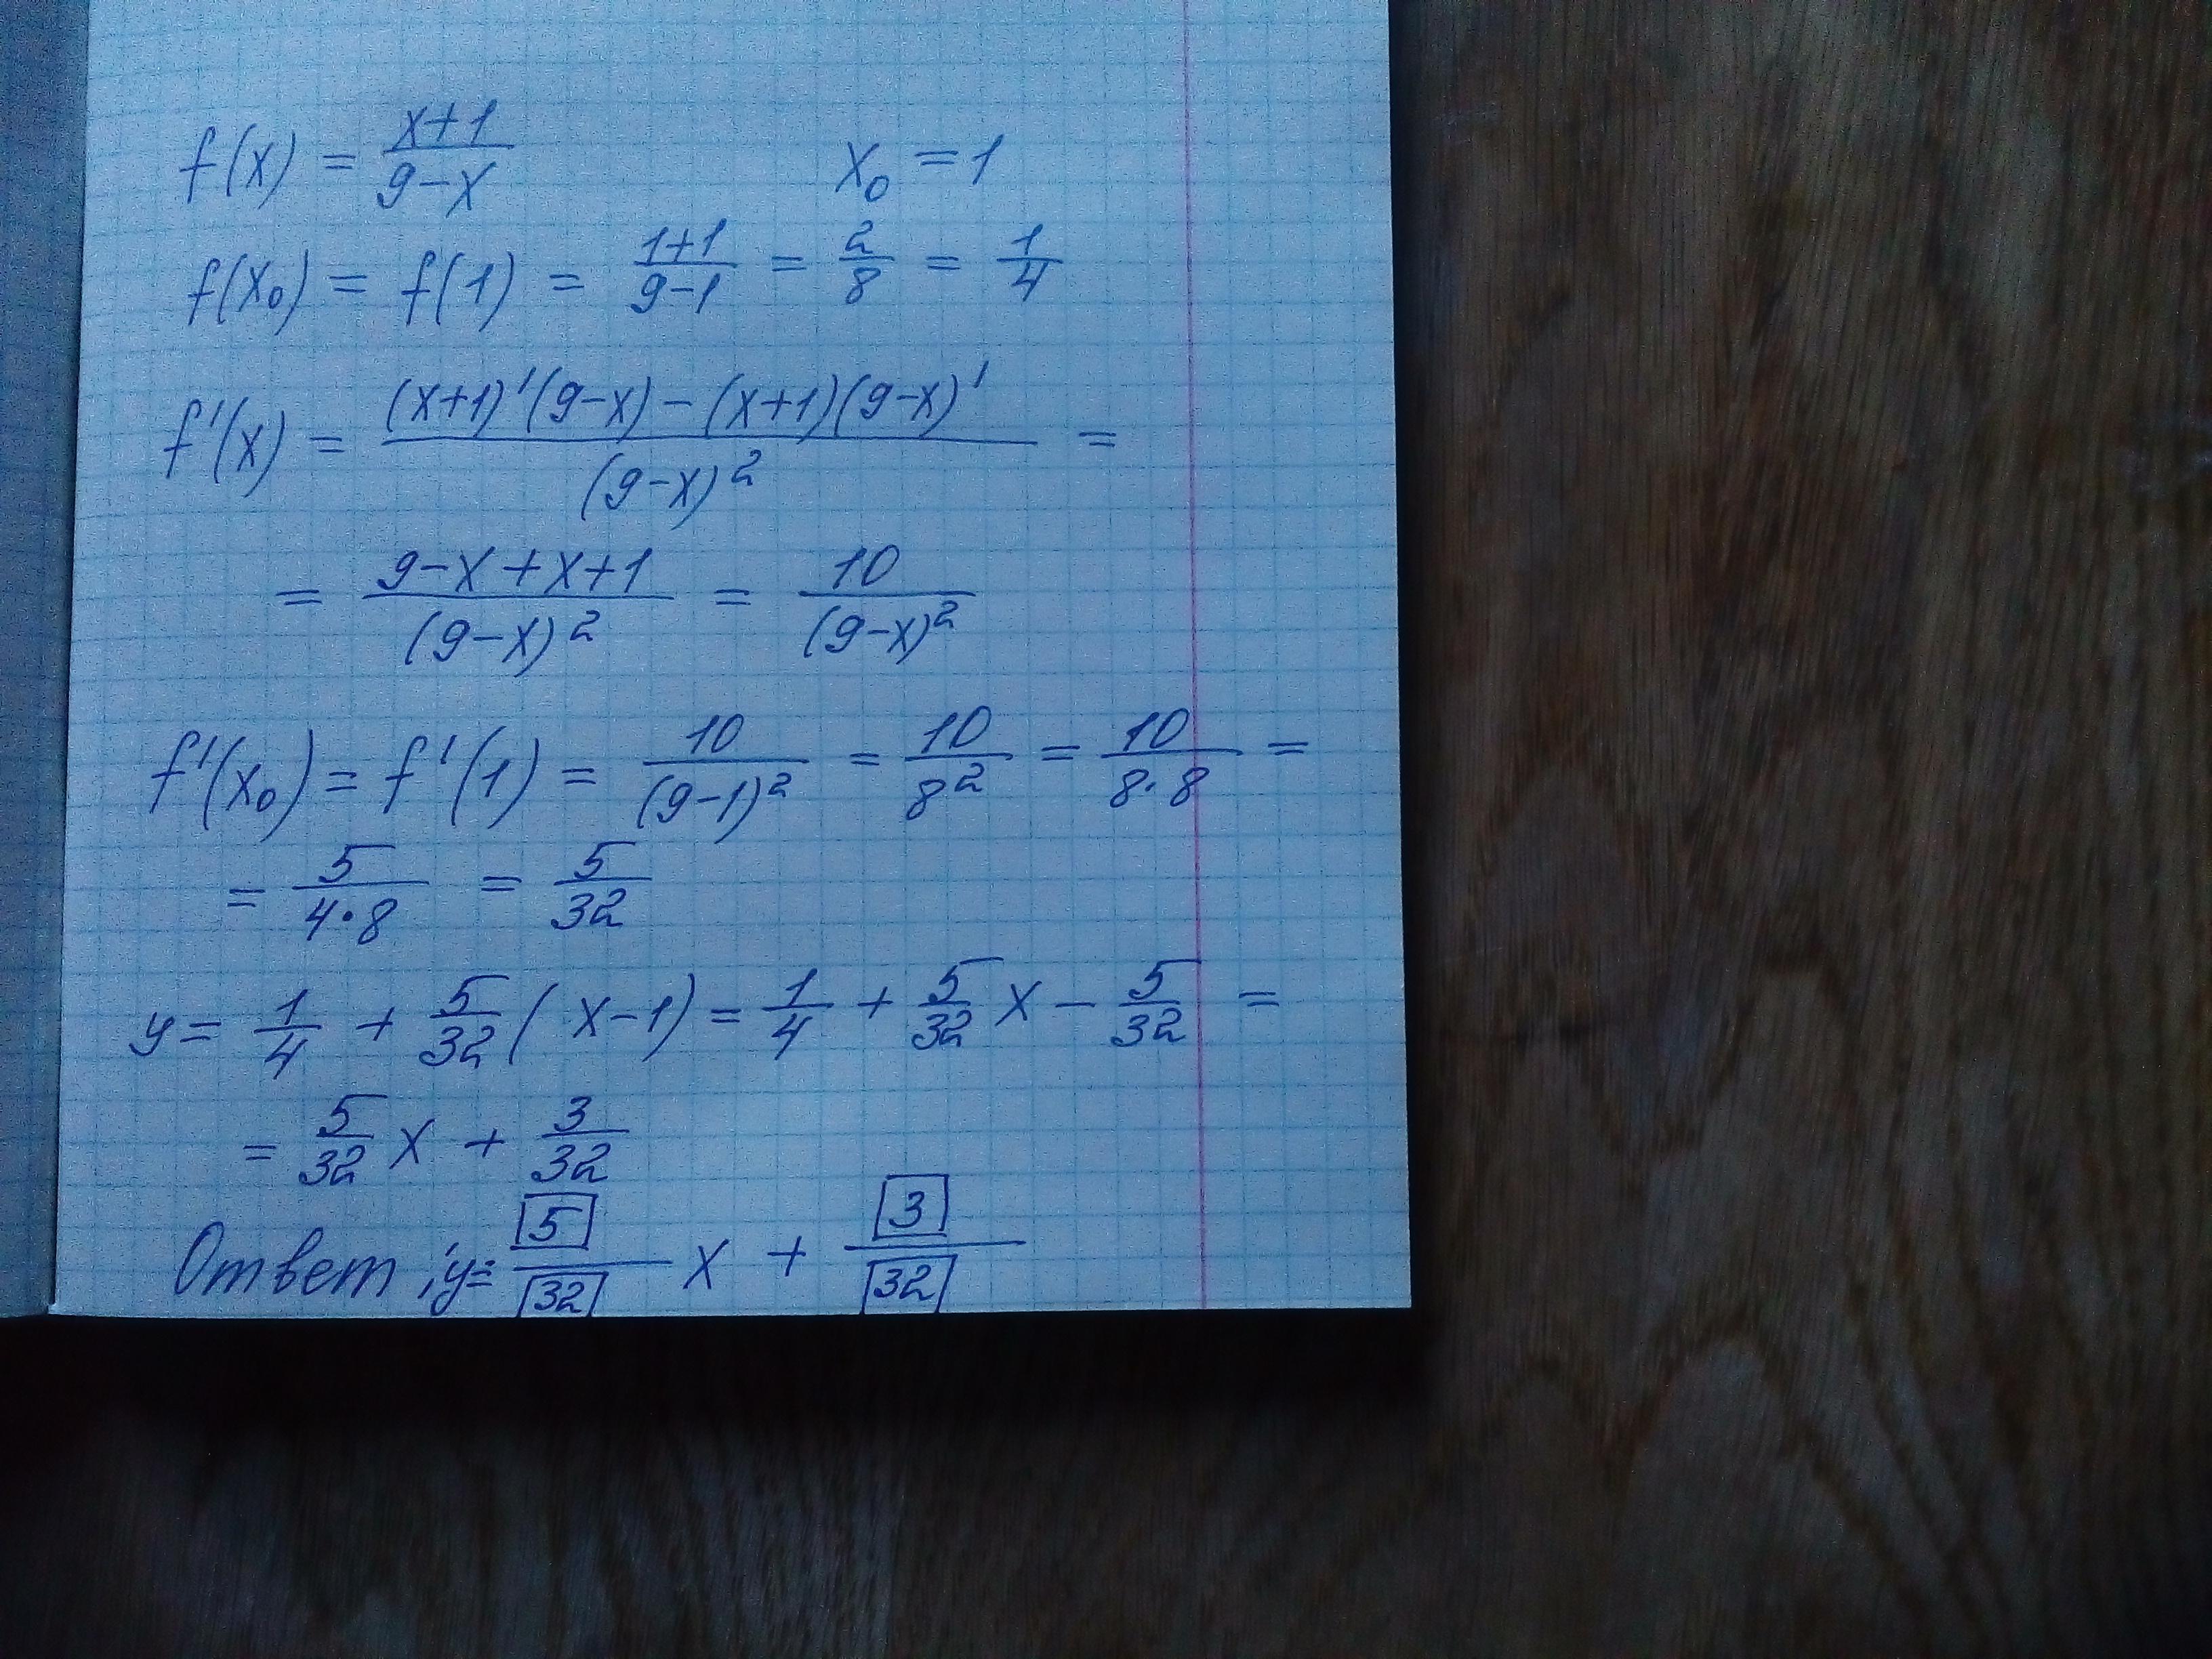 f(x) = (x+1)/(9-x)   x₀ = 1
f(x₀) = f(1) = (1+1)/(9-1) = 2/8 = 1/4
f'(x) = ((x+1)'(9-x) - (x+1)(9-x)')/(9-x)² =
= (9-x+x+1)/(9-x)² = 10/(9-x)²
f'(x₀) = f'(1) = 10/(9-1)² = 10/8² = 10/(8·8) =
= 5/(4·8) = 5/32
y = 1/4 + 5/32 (x-1) = 1/4 + 5/32 x - 5/32 =
= 5/32 x + 3/32
Ответ: y = 5/32 x + 3/32